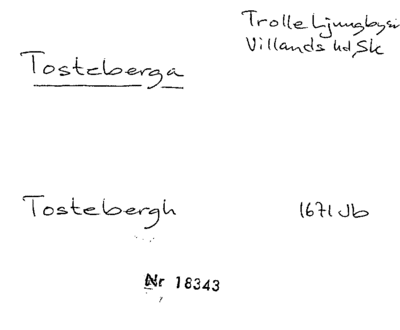 Trolle Ljungby sn
Villands hd, Sk
Tosteberga
Tostebergh 1671 Jb
Nr 18343